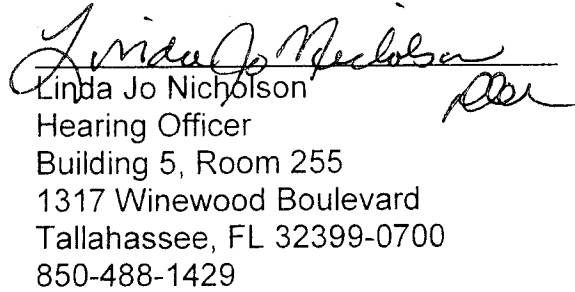 Linda Jo Nicholson
Linda Jo Nicholson
Hearing Officer
Building 5, Room 255
1317 Winewood Boulevard
Tallahassee, FL 32399-0700
850-488-1429